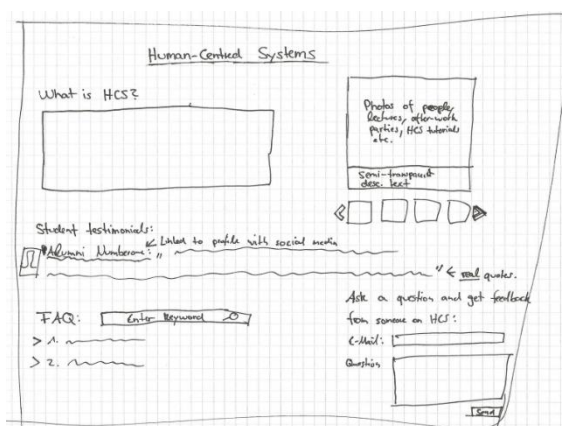 Human-Centred Systems
What is HCS?
Photos of people,
lectures, after-work
parties, HCS tutorials
etc.
Semi-transparent
desc. text
Student testimonials:
Alumni Numberone: " ← Linked to profile with social media
" ← real quotes.
FAQ: Enter Keyword
> 1.
> 2.
Ask a question and get feedback
from someone on HCS:
E-Mail:
Question
Send